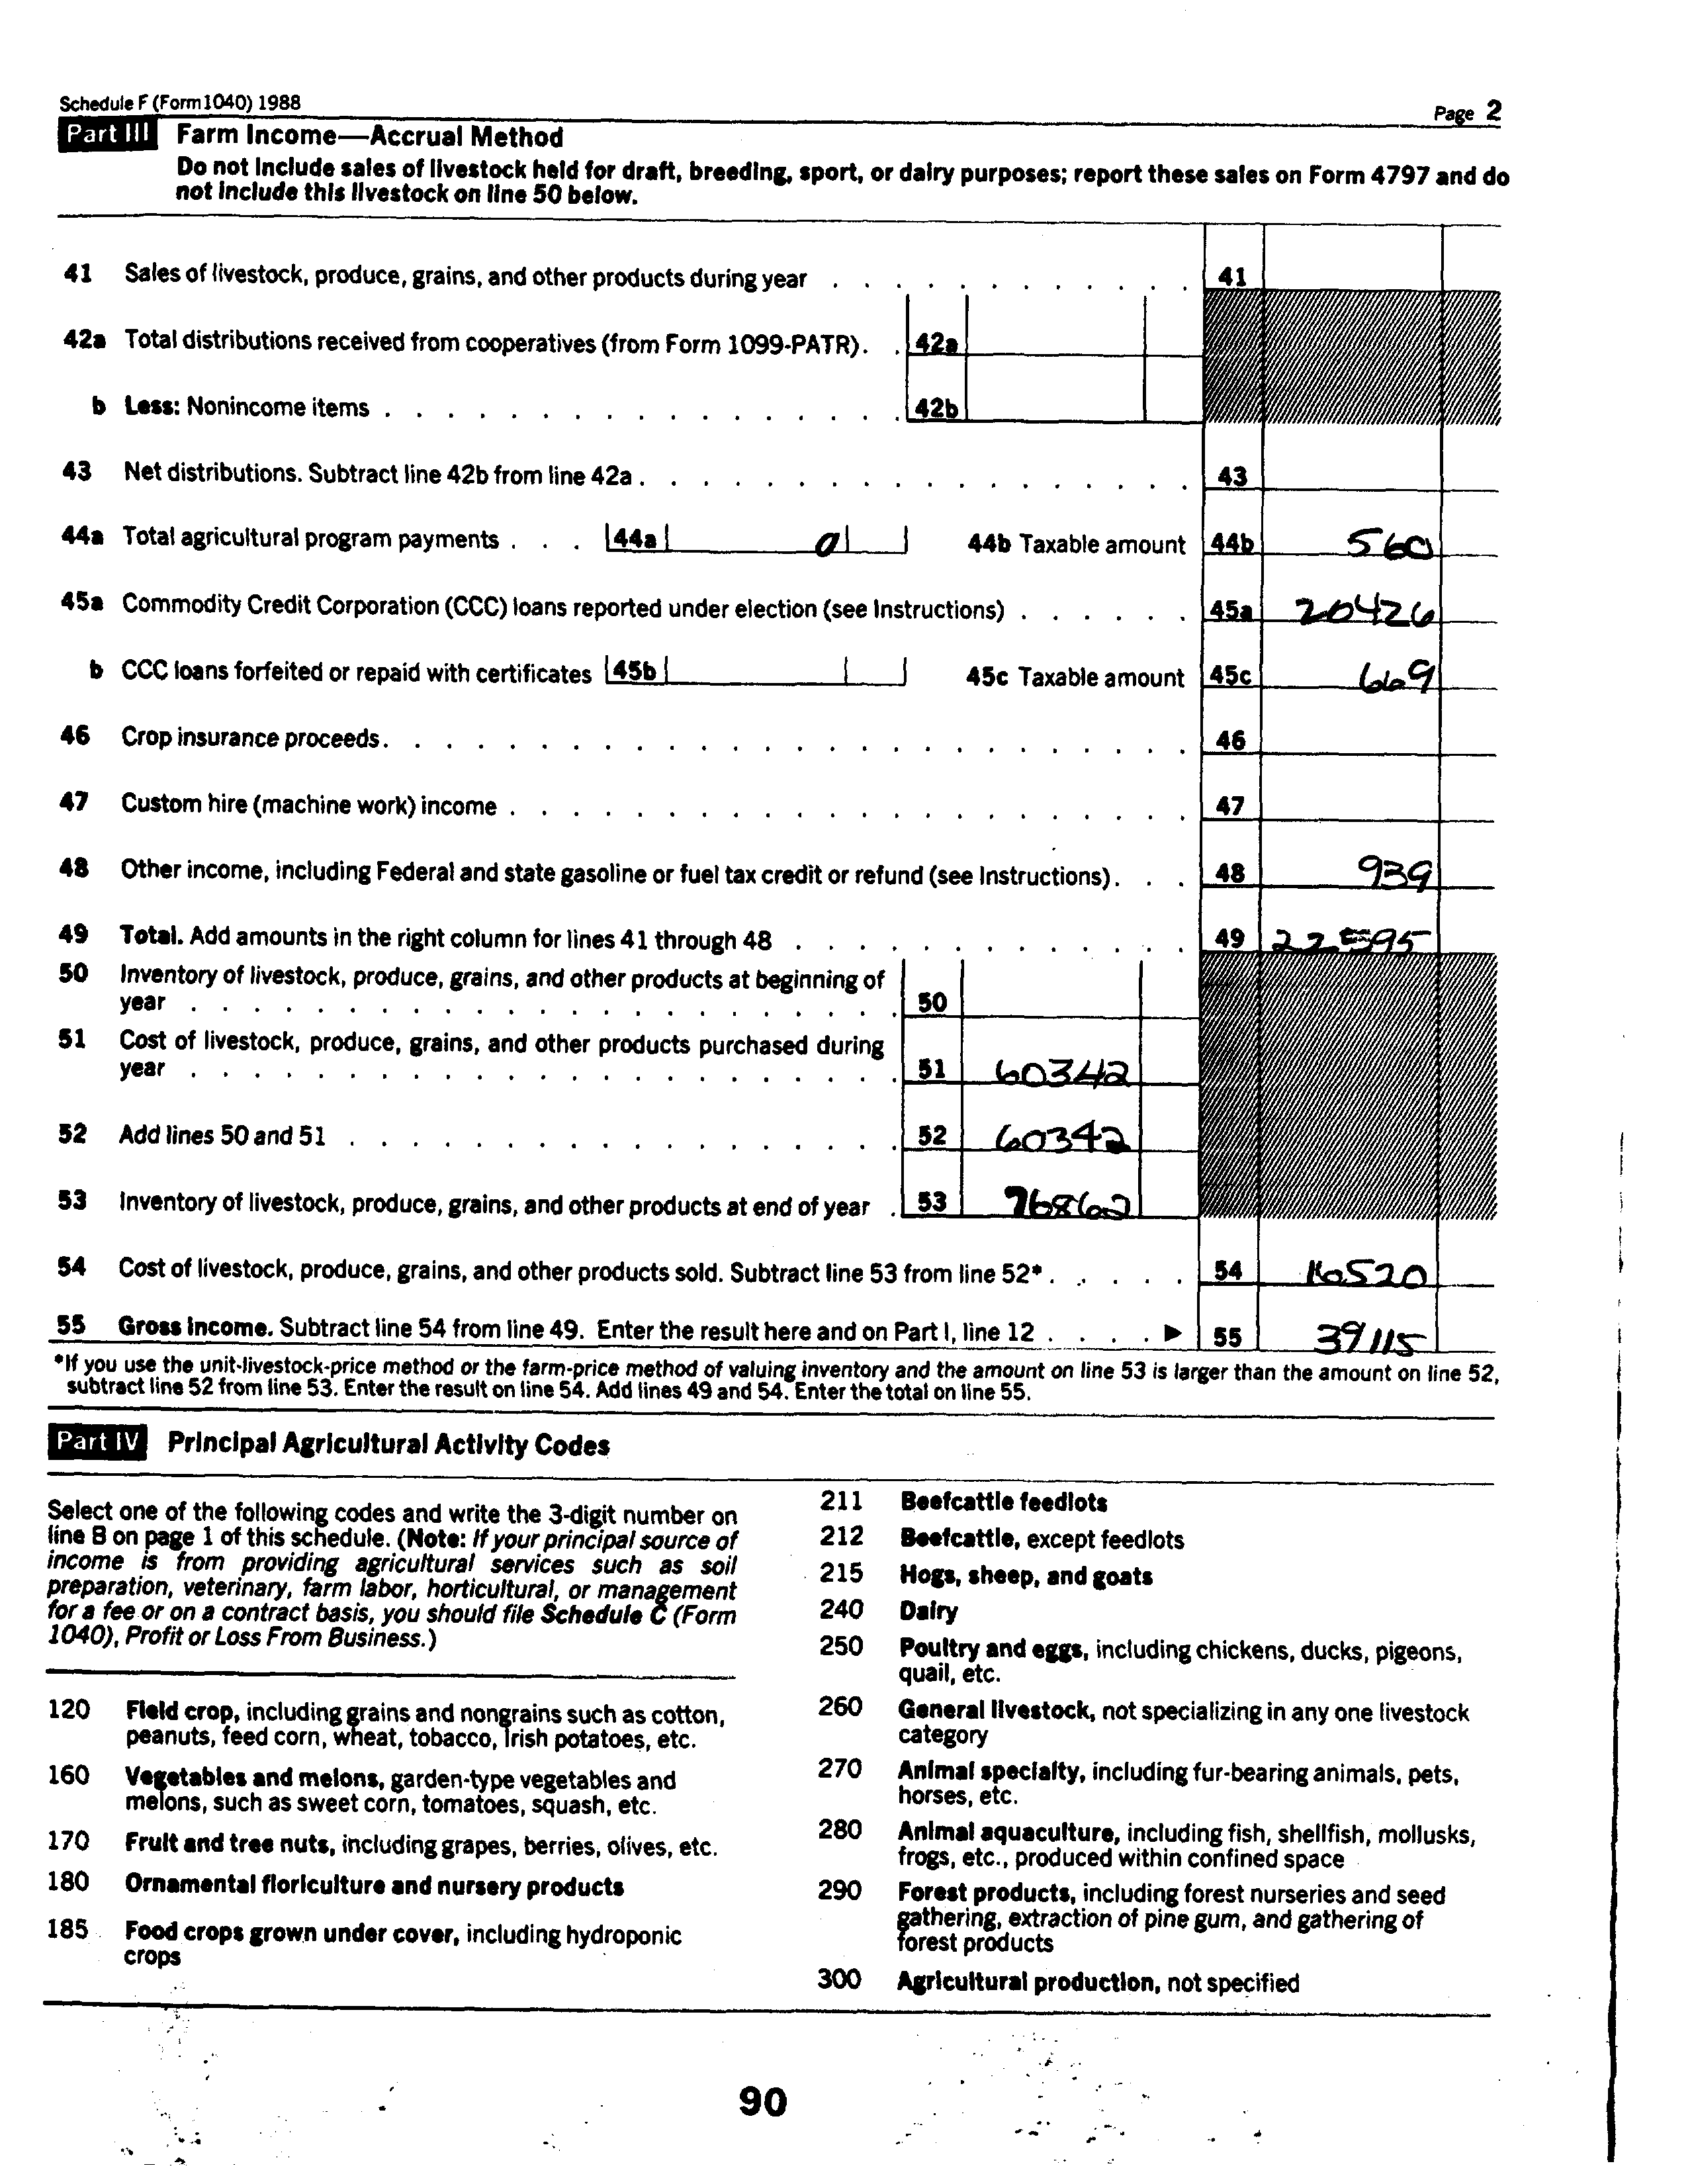 Schedule F (Form 1040) 1988
Page 2
Part III Farm Income—Accrual Method
Do not include sales of livestock held for draft, breeding, sport, or dairy purposes; report these sales on Form 4797 and do
not include this livestock on line 50 below.
41 Sales of livestock, produce, grains, and other products during year . . . . . . . . . . . . 41
42a Total distributions received from cooperatives (from Form 1099-PATR). . 42a
b Less: Nonincome items . . . . . . . . . . . . . . . . . 42b
43 Net distributions. Subtract line 42b from line 42a . . . . . . . . . . . . . . . . . . 43
44a Total agricultural program payments . . . 44a 0 44b Taxable amount 44b 560
45a Commodity Credit Corporation (CCC) loans reported under election (see Instructions) . . . . . . 45a 20426
b CCC loans forfeited or repaid with certificates 45b 45c Taxable amount 45c 669
46 Crop insurance proceeds. . . . . . . . . . . . . . . . . . . . . . . . . . 46
47 Custom hire (machine work) income . . . . . . . . . . . . . . . . . . . . . . 47
48 Other income, including Federal and state gasoline or fuel tax credit or refund (see Instructions). . . 48 939
49 Total. Add amounts in the right column for lines 41 through 48 . . . . . . . . . . . . . 49 22595
50 Inventory of livestock, produce, grains, and other products at beginning of
year . . . . . . . . . . . . . . . . . . . . . . . 50
51 Cost of livestock, produce, grains, and other products purchased during
year . . . . . . . . . . . . . . . . . . . . . . . 51 60342
52 Add lines 50 and 51 . . . . . . . . . . . . . . . . . . 52 60342
53 Inventory of livestock, produce, grains, and other products at end of year . 53 76862
54 Cost of livestock, produce, grains, and other products sold. Subtract line 53 from line 52* . . . . . 54 16520
55 Gross income. Subtract line 54 from line 49. Enter the result here and on Part I, line 12 . . . . ▶ 55 39115
*If you use the unit-livestock-price method or the farm-price method of valuing inventory and the amount on line 53 is larger than the amount on line 52,
subtract line 52 from line 53. Enter the result on line 54. Add lines 49 and 54. Enter the total on line 55.
Part IV Principal Agricultural Activity Codes
Select one of the following codes and write the 3-digit number on
line B on page 1 of this schedule. (Note: If your principal source of
income is from providing agricultural services such as soil
preparation, veterinary, farm labor, horticultural, or management
for a fee or on a contract basis, you should file Schedule C (Form
1040), Profit or Loss From Business.)
120 Field crop, including grains and nongrains such as cotton,
peanuts, feed corn, wheat, tobacco, Irish potatoes, etc.
160 Vegetables and melons, garden-type vegetables and
melons, such as sweet corn, tomatoes, squash, etc.
170 Fruit and tree nuts, including grapes, berries, olives, etc.
180 Ornamental floriculture and nursery products
185 Food crops grown under cover, including hydroponic
crops
211 Beefcattle feedlots
212 Beefcattle, except feedlots
215 Hogs, sheep, and goats
240 Dairy
250 Poultry and eggs, including chickens, ducks, pigeons,
quail, etc.
260 General livestock, not specializing in any one livestock
category
270 Animal specialty, including fur-bearing animals, pets,
horses, etc.
280 Animal aquaculture, including fish, shellfish, mollusks,
frogs, etc., produced within confined space
290 Forest products, including forest nurseries and seed
gathering, extraction of pine gum, and gathering of
forest products
300 Agricultural production, not specified
90